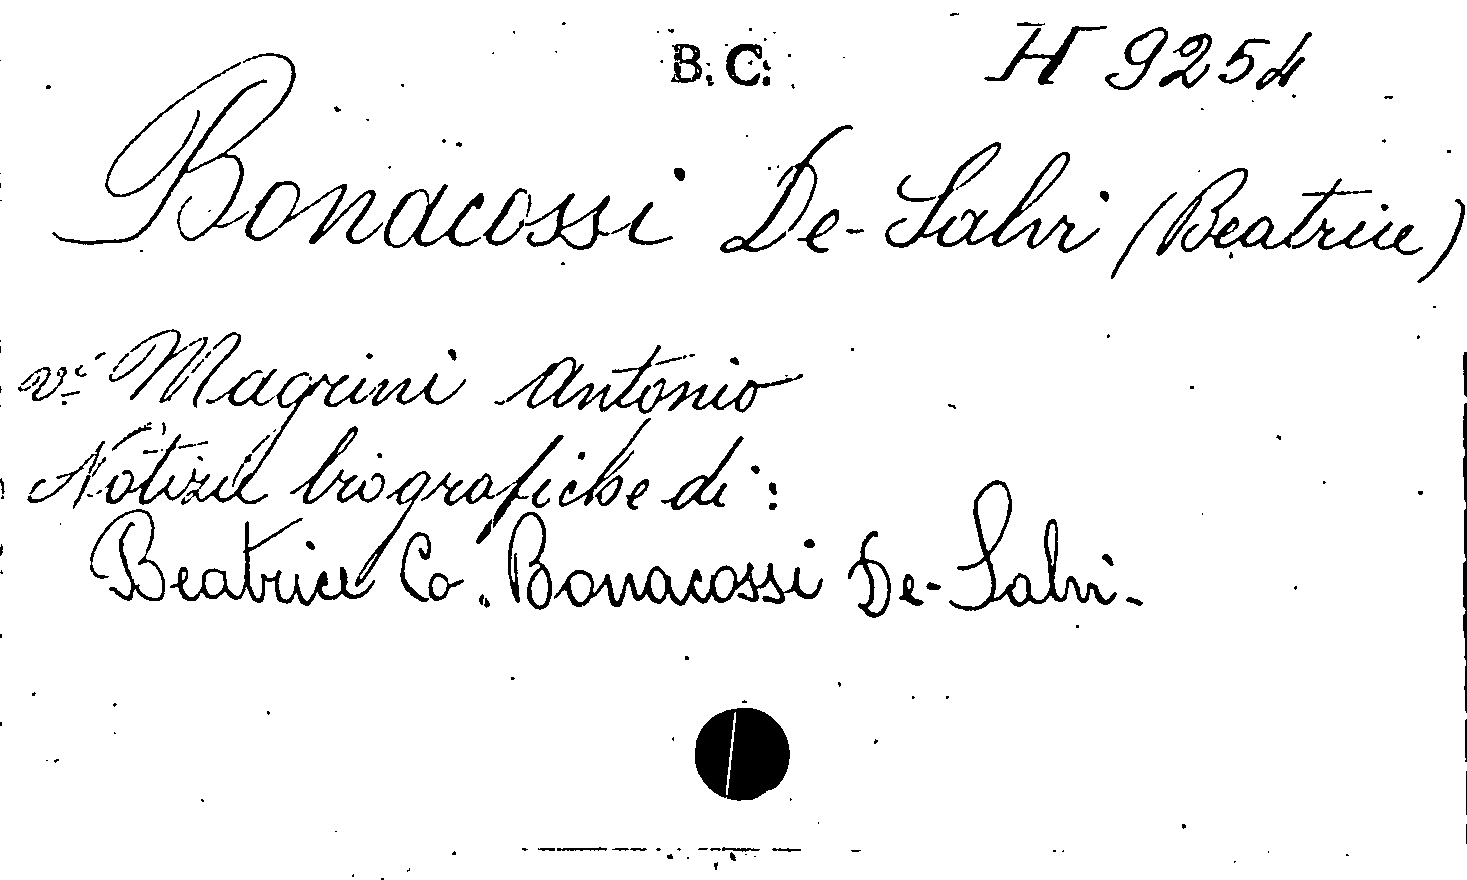 B. C. H 9254
Bonacossi De-Salvi (Beatrice)
vi Magrini Antonio
Notizie biografiche di:
Beatrice Co. Bonacossi De-Salvi.